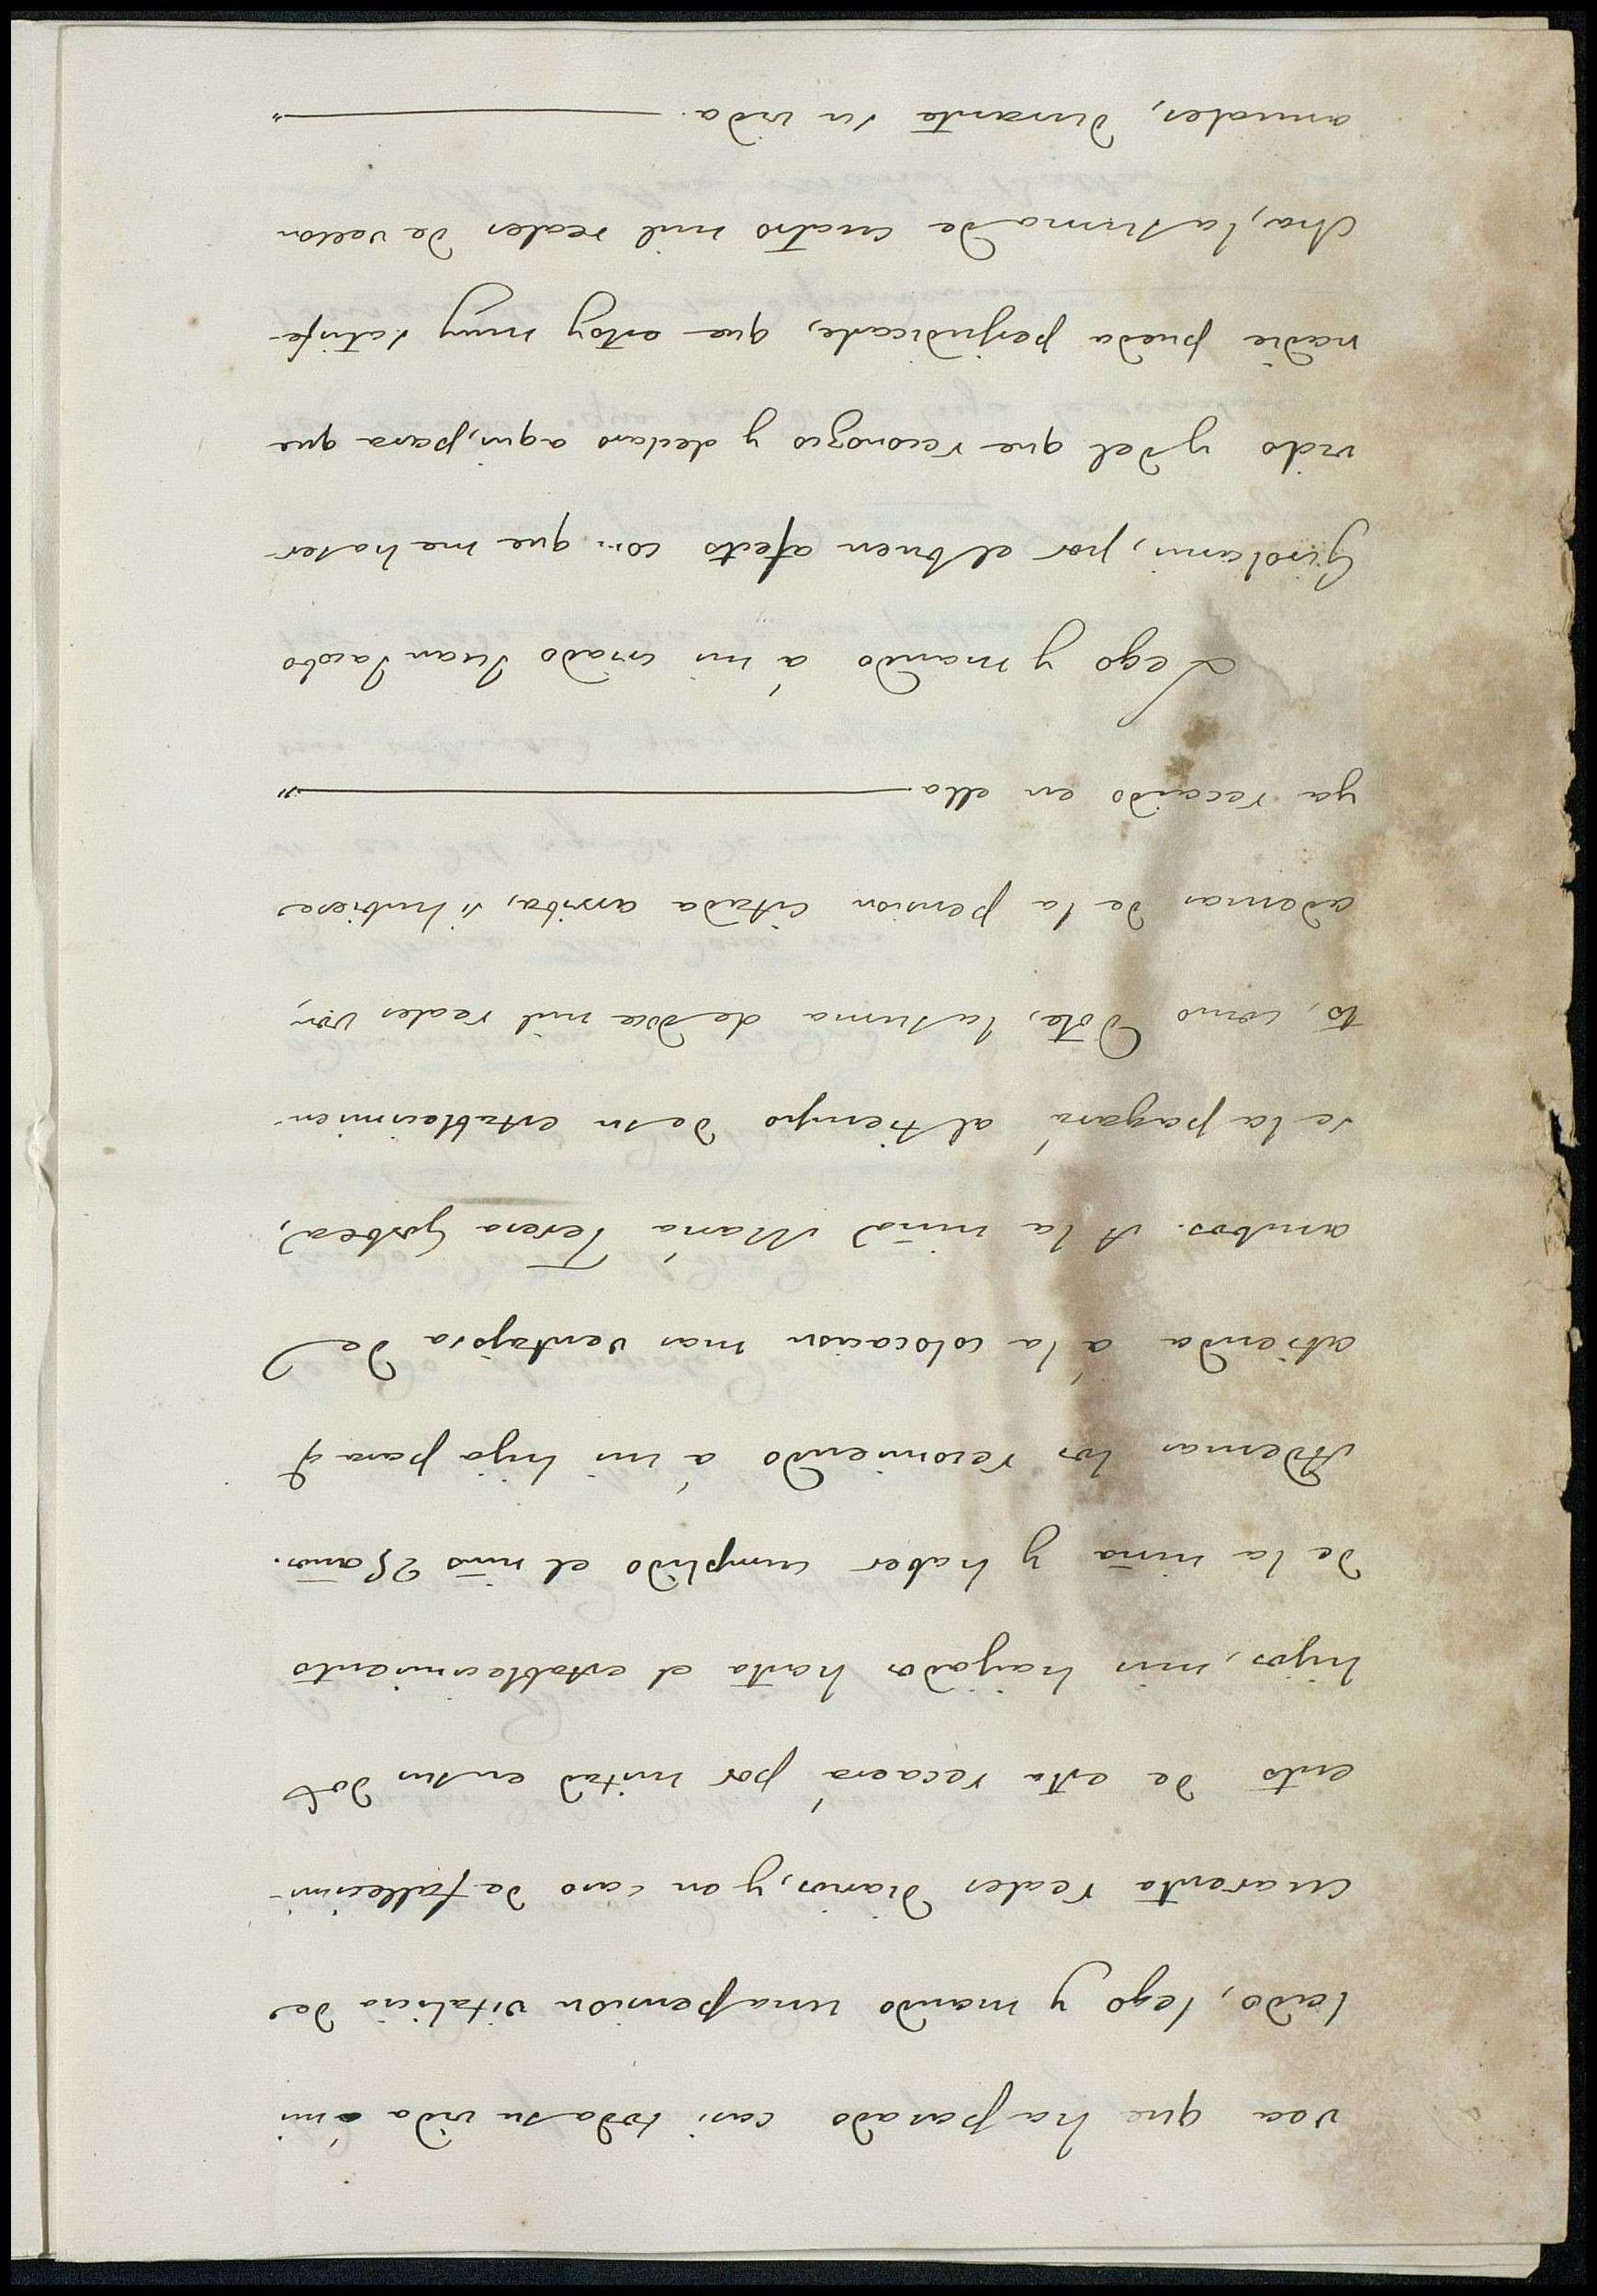 vea que ha pasado casi toda su vida á mi
lado, lego y mando una pension vitalicia de
cuarenta reales diarios, y en caso de fallecimi-
ento de esta recaerá por mitad en sus dos
hijos, mis haijados hasta el establecimiento
de la niña y haber cumplido el niño 25 años.
Ademas los recomiendo á mi hija para q
atienda á la colocacion mas ventajosa de
ambos. A la niña Maria Teresa Gorbea,
se la pagará al tiempo de su establecimien-
to, como Dote, la suma de doce mil reales von,
ademas de la pension citada arriba, si hubiese
ya recaido en ella. "
Lego y mando á mi criado Juan Jacobo
Girolami, por el buen afecto con que me ha ser-
vido y del que reconozco y declaro aqui, para que
nadie pueda perjudicarle, que estoy muy satisfe-
cha, la suma de cuatro mil reales de vellon
anuales, durante su vida. "